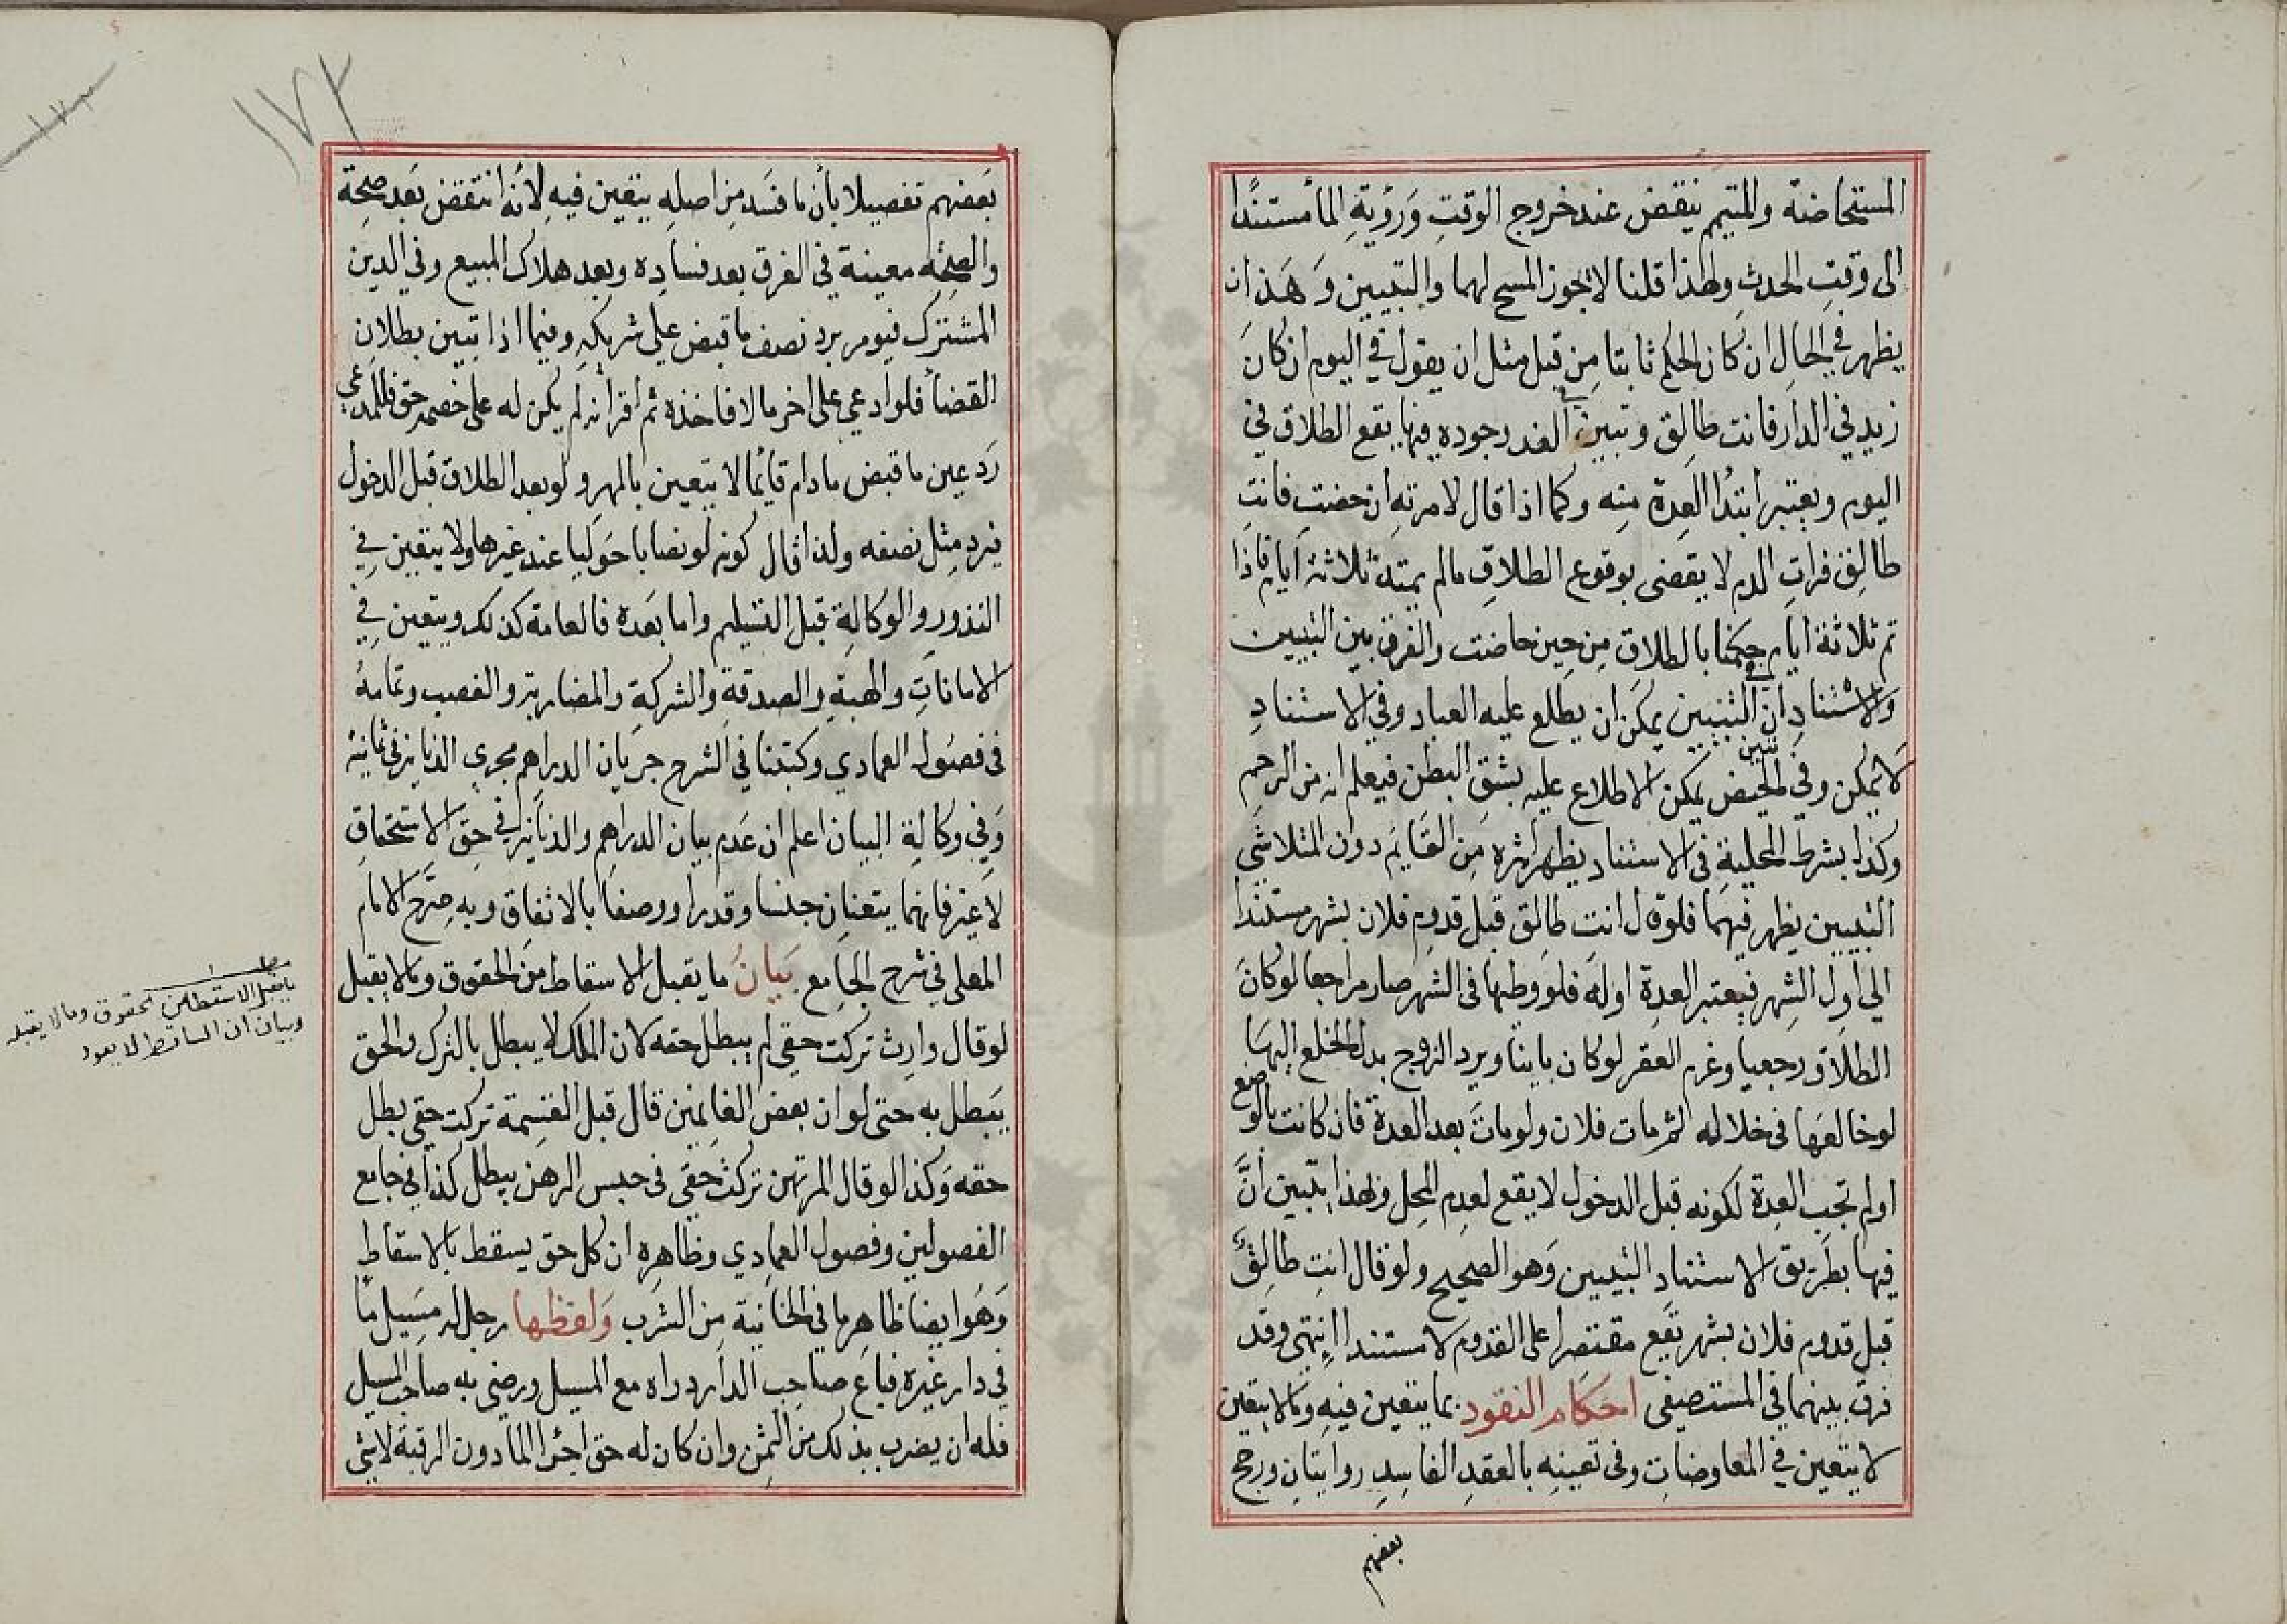 المستحاضة والمتيم ينقض عند خروج الوقتِ وَرؤيةِ الماٴ مستندًا
الى وقتِ الحدثِ ولهذا قلنا لا يجوز المسح لهما والتبيين وَهَذ ان
يظهر في الحالِ ان كان الحكم ثابتا مِن قبل مثل ان يقول في اليوم ان كانَ
زيد في الدار فانت طالِق وتبين في الغد وجوده فيها يقع الطلاق في
اليوم ويعتبر ابتدٴا العِدة مِنه وكما اذا قال لامرته ان حضتِ فانتِ
طالِق فرات الدم لا يقضى بوقوع الطلاقِ مالم يمتد ثلاثة ايام فاذا
تم ثلاثة ايام حكمنا بالطلاقِ مِن حِين حاضت والفرق بين التبيين
والاستنادِ ان في التبيين يمكن ان يطلع عليه العباد وفي الاستنادِ
لا يمكن وفي الحيض تبين يمكن الاطلاع عليه بشق البطن فيعلم انه من الرحم
وكذا بشرط المحلية فى الاستناد يظهر اثره مِن القايم دون المتلاشي
التبيين يظهر فيهما فلو قال انت طالق قبل قدوم فلان بشهر مستندا
الي اول الشهر فيعتبر العدة اوله فلو وطيها فى الشهر صار مراجعا لو كانَ
الطلاق رجعيا وغرم العقر لو كان باينا ويرد الزوج بدل الخلع اليها
لو خالعَها فى خلاله ثم مات فلان ولو ماتَ بعد العدة فان كانت بالوضع
او لم تجب العدة لكونه قبل الدخول لا يقع لعدم المحل ولهذا يتبين انَّ
فيها بطَريق الاستناد التبيين وَهو الصحيح ولو قال انتِ طالِقٌ
قبل قدوم فلان بشهر يقع مقتصرا على القدوم لا مستندا انتهى وقد
فرق بينهما في المستصفى احكام النقود بما يتعين فيهِ وما لا يتعين
لا يتعين في المعاوضاتِ وفى تعينِه بالعقدِ الفاسِدِ روايتانِ ورجح
بعضهم
١٧٢
١٧٣
بَعضهم تفصيلا بأن ما فسَد مِن اصلِهِ يتعين فيهِ لِانه انتقض بَعد صِحة
والصحة معينة في الفرق بعد فسادِه وبعد هلاك المبيع وفي الدين
المشترك فيومر برد نصف ما قبض علي شريكهِ وفيما اذا تبين بطلان
القضاٴ فلو ادعي على اخر مالا فاخذه ثم اقر انه لم يكن له على خصمه حق فللمدعي
رَد عين ما قبض مادام قائما لا يتعين بالمهر ولو بعد الطلاق قبل الدخول
يرد مِثل نصفه ولذا قال كونه لو نصابا حَوليا عند غيرها ولا يتعين في
النذورِ والوكالةِ قبل التسليم واما بَعده فالعامة كذلك ويتعين في
الاماناتِ والهبةِ والصدقةِ والشركةِ والمضاربة والغصب وتمامهُ
فى فصول العمادي وكتبنا في الشرح جريان الدراهم مجري الدنانير في ثمانية
وَفي وكالةِ البيان اعلم ان عَدم بيان الدراهِم والدنانير في حق الاستحقاقِ
لا غير فانهما يتعنيان جنسا وقدرا ووصفا بالاتفاق وبه صَرّح الامام
المعلى في شرح الجامع بَيانُ ما يقبل الاسقاط مِن الحقوق وما لا يقبل
لو قال وارث تركت حقي لم يبطل حقه لان الملك لا يبطل بالترك والحق
يبَطل به حتى لو ان بعض الغانمين قال قبل القسمة تركت حقي بطل
حقه وَكذا لو قال المرتهن تركت حَقى فى حبس الرهن يبطل كذا في جامع
الفصولين وفصول العمادي وظاهِره ان كل حق يسقط بالاسقاطِ
وَهُوَ ايضا ظاهر ما في الخانية مِن الشرب وَلفظها رجل له مَسيل ماٴ
في دار غيره فباع صاحب الدار داره مع المسيل ورضى به صاحب المسيل
فله ان يضرب بذلك من الثمن وان كان له حق اجرٴا الماٴ دون الرقبة لا شي
ما يقبل الاسقاط من الحقوق وما لا يقبله
وبيان ان الساقط لا يعود